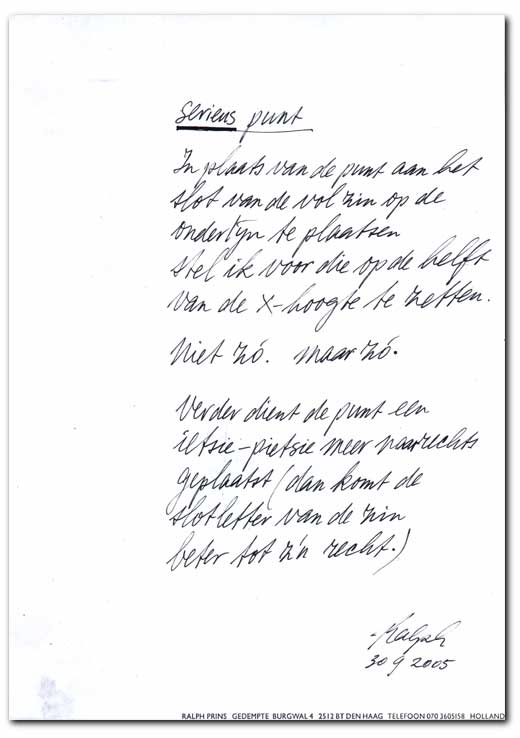 serieus punt
In plaats van de punt aan het
slot van de vol zin op de
onderlijn te plaatsen
stel ik voor die op de helft
van de x-hoogte te zetten.
Niet zó. maar zó.
Verder dient de punt een
ietsie-pietsie meer naar rechts
geplaatst (dan komt de
slotletter van de zin
beter tot z'n recht.)
-Ralph
30 9 2005
RALPH PRINS GEDEMPTE BURGWAL 4 2512 BT DEN HAAG TELEFOON 070 3605158 HOLLAND